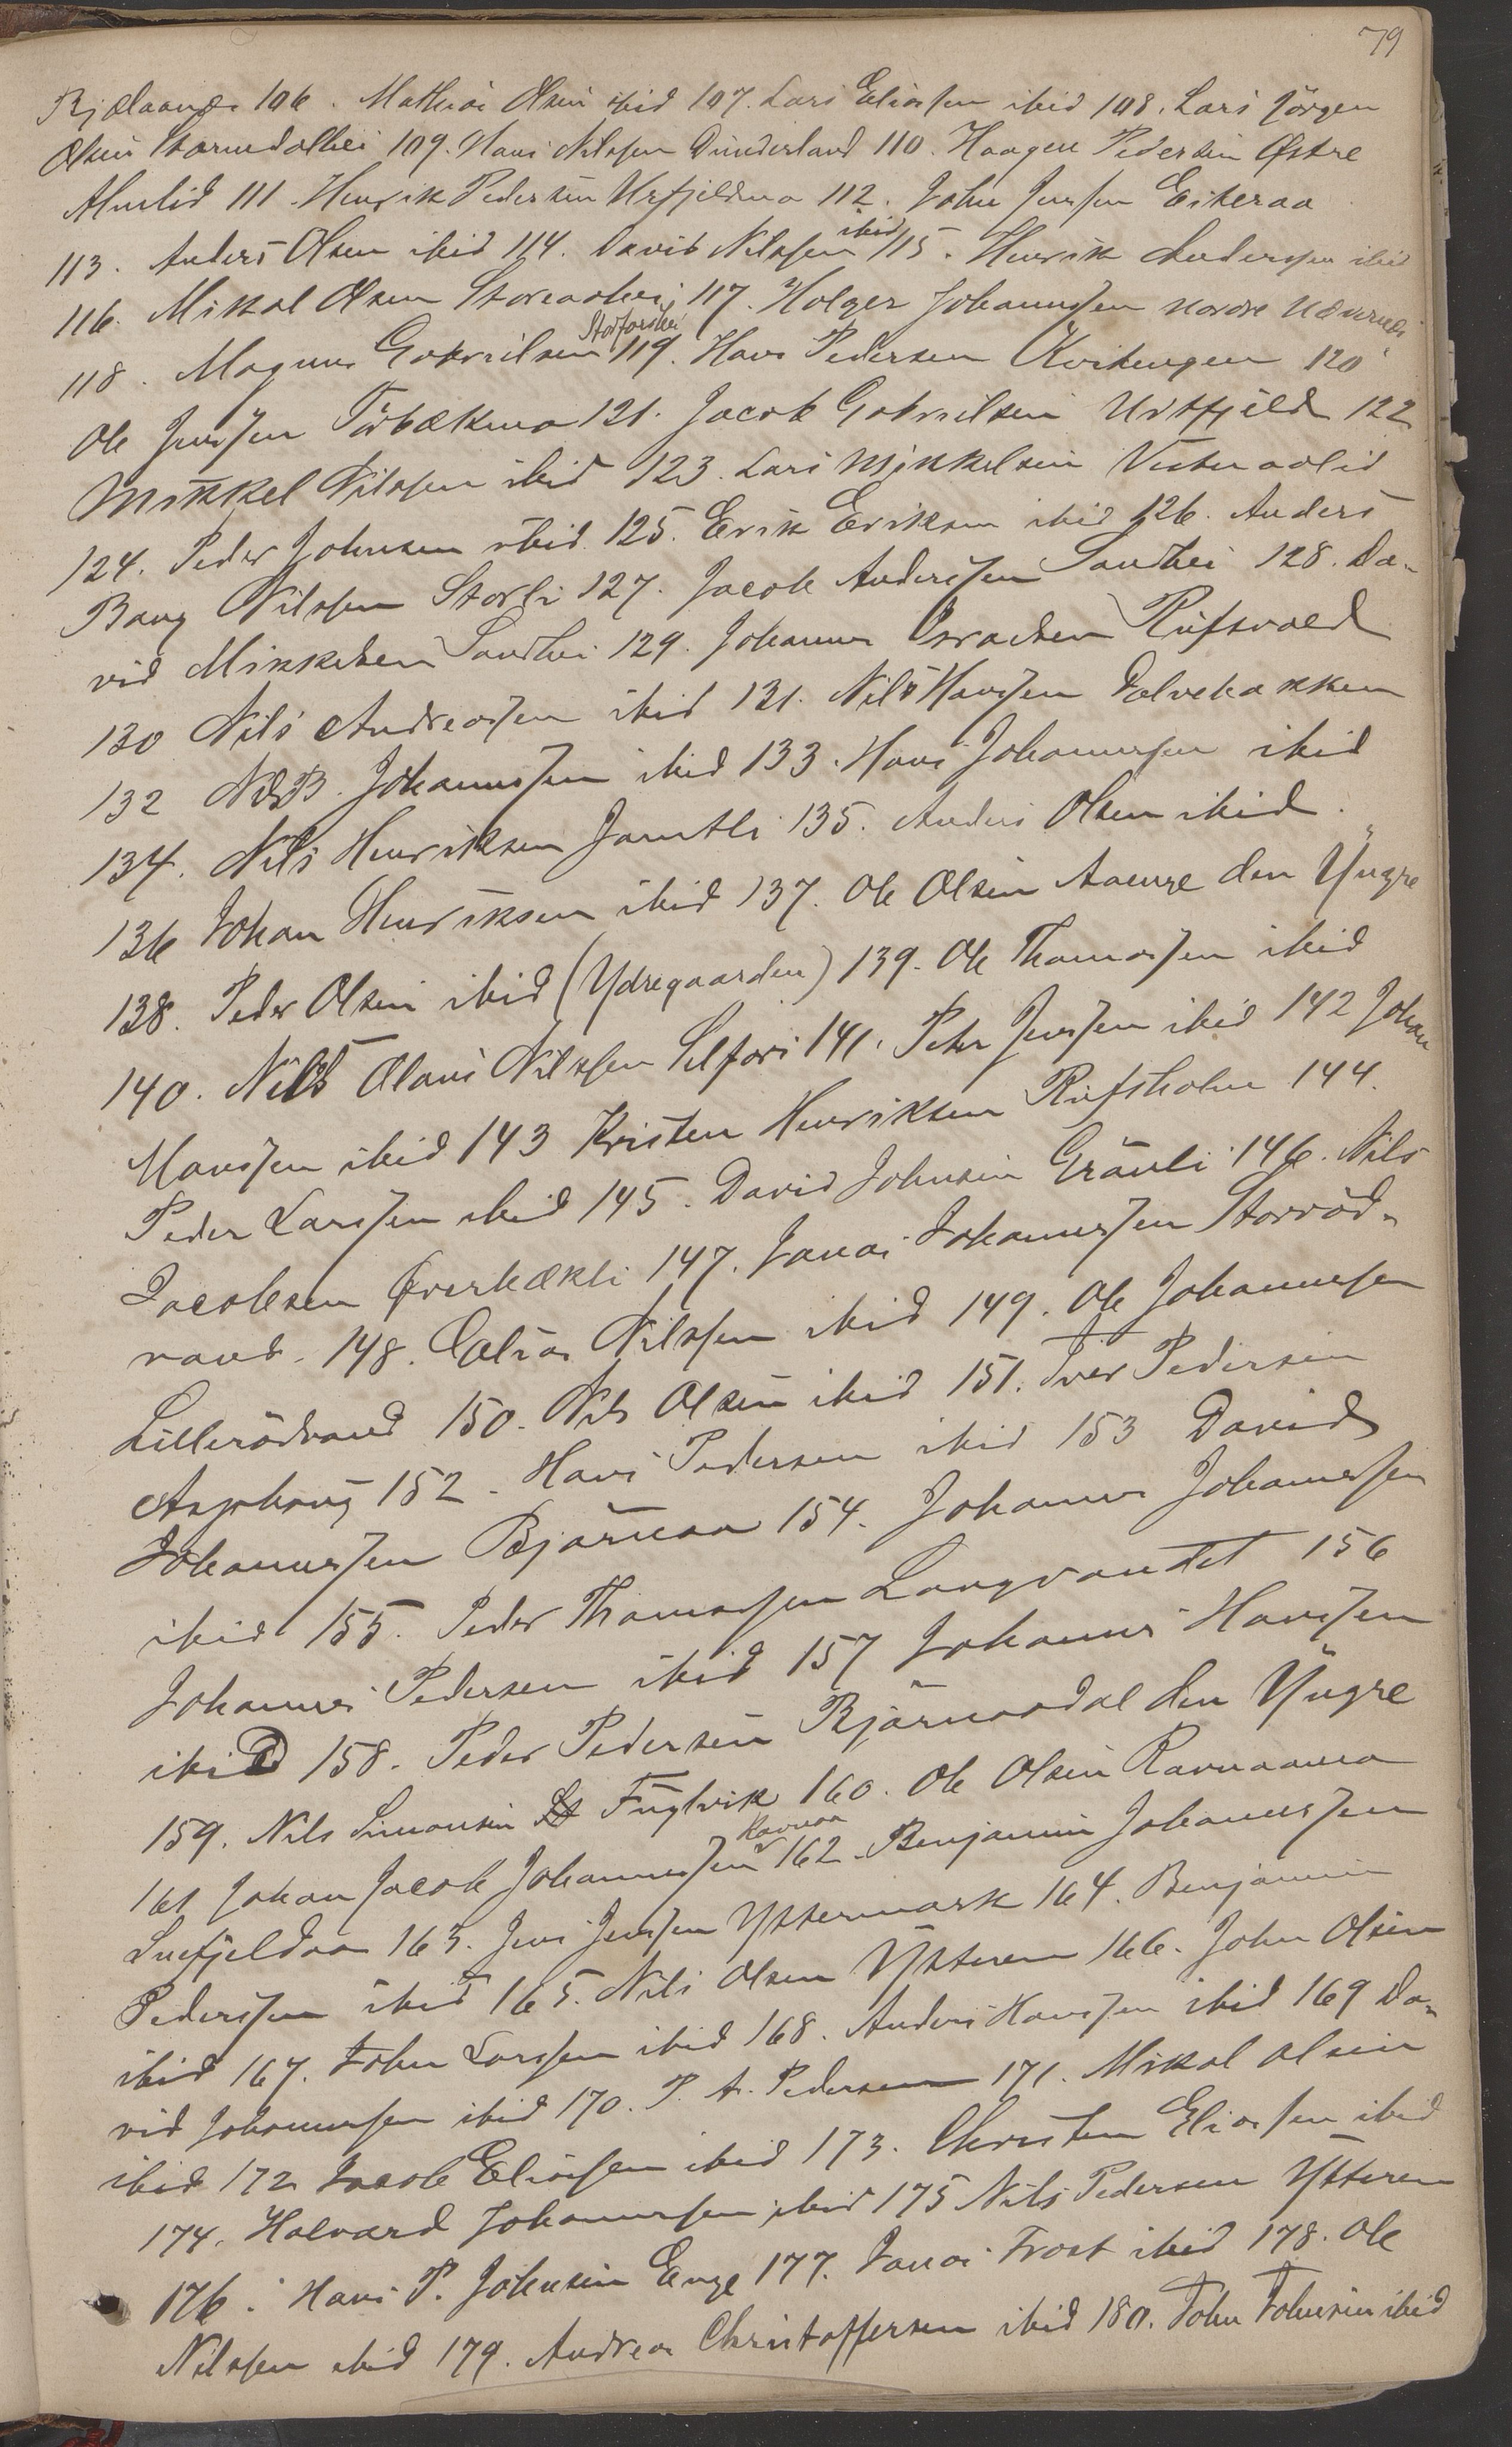 79
Bjelaanes 106. Mathias Olsen ibid 107. Lars Eliassen ibid 108. Lars Jörgen
Olsen Stormdalhei 109. Hans Nilssen Dunderland 110. Haagen Pedersen Østre
Almlid 111. Henrik Pedersen Urfjeldmo 112. John Jenssen Eiteraa
113. Anders Olsen ibid 114. David Nilssen ibid 115. Henrik Anderssen ibid
116. Mikal Olsen Storaahei 117. Holger Johannessen nordre Nævernes
118. Magnus Gabrielsen Storforshei 119. Hans Pedersen Kvitengen 120
Ole Jenssen Törbækmo 121. Jacob Gabrielsen Urtfjeld 122
Mikkel Nilssen ibid 123. Lars Mikkelsen Vesteraalid
124. Peder Johnsen ibid. 125. Erik Eriksen ibid 126. Anders
Bang Nilssen Storli 127. Jacob Anderssen Sandhei 128. Da-
vid Mikkelsen Sandhei 129. Johannes Israelsen Rufsvold
130 Nils Andreassen ibid 131. Nils Hanssen Tolvebakken
132 Nils B. Johannessen ibid 133. Hans Johannessen ibid
134. Nils Henriksen Jamtli 135. Anders Olsen ibid.
136 Johan Henriksen ibid 137. Ole Olsen Aaenge den Yngre
138. Peder Olsen ibid (Ydregaarden) 139. Ole Thomassen ibid
140. Nils Olaus Nilssen Selfors 141. Peter Jenssen ibid 142 Johan
Hanssen ibid 143 Kristen Henriksen Rufsholm 144.
Peder Larssen ibid 145. David Johnsen Grånli 146. Nils
Jacobsen Øverbækli 147. Jonas Johannessen Storröd-
vand. 148. Elias Nilssen ibid 149. Ole Johannessen
Lillerödvand 150. Nils Olsen ibid 151. Iver Pedersen
Asphaug 152. Hans Pedersen ibid 153 David
Johannessen Bjørnaa 154. Johannes Johannessen
ibid 155. Peder Thomassen Langvandet 156
Johannes Pedersen ibid 157 Johannes Hanssen
ibid 158. Peder Pedersen Bjørnaadal den Yngre
159. Nils Simonsen Fuglvik 160. Ole Olsen Ravnaamo
161 Johan Jacob Johannessen Ravnaa 162. Benjamin Johannessen
Snefjeldaa 163. Jens Jenssen Yttermark 164. Benjamin
Pederssen ibid 165. Nils Olsen Ytteren 166. John Olsen
ibid 167. John Larssen ibid 168. Anders Hanssen ibid 169 Da-
vid Johannessen ibid 170. P. A. Pedersen 171. Mikal Olsen
ibid 172 Jacob Eliassen ibid 173. Christen Eliassen ibid
174. Halvard Johannessen ibid 175 Nils Pedersen Ytteren
176. Hans P. Johnsen Enge 177. Jonas Frost ibid 178. Ole
Nilssen ibid 179. Andreas Christoffersen ibid 180. John Johnsen ibid